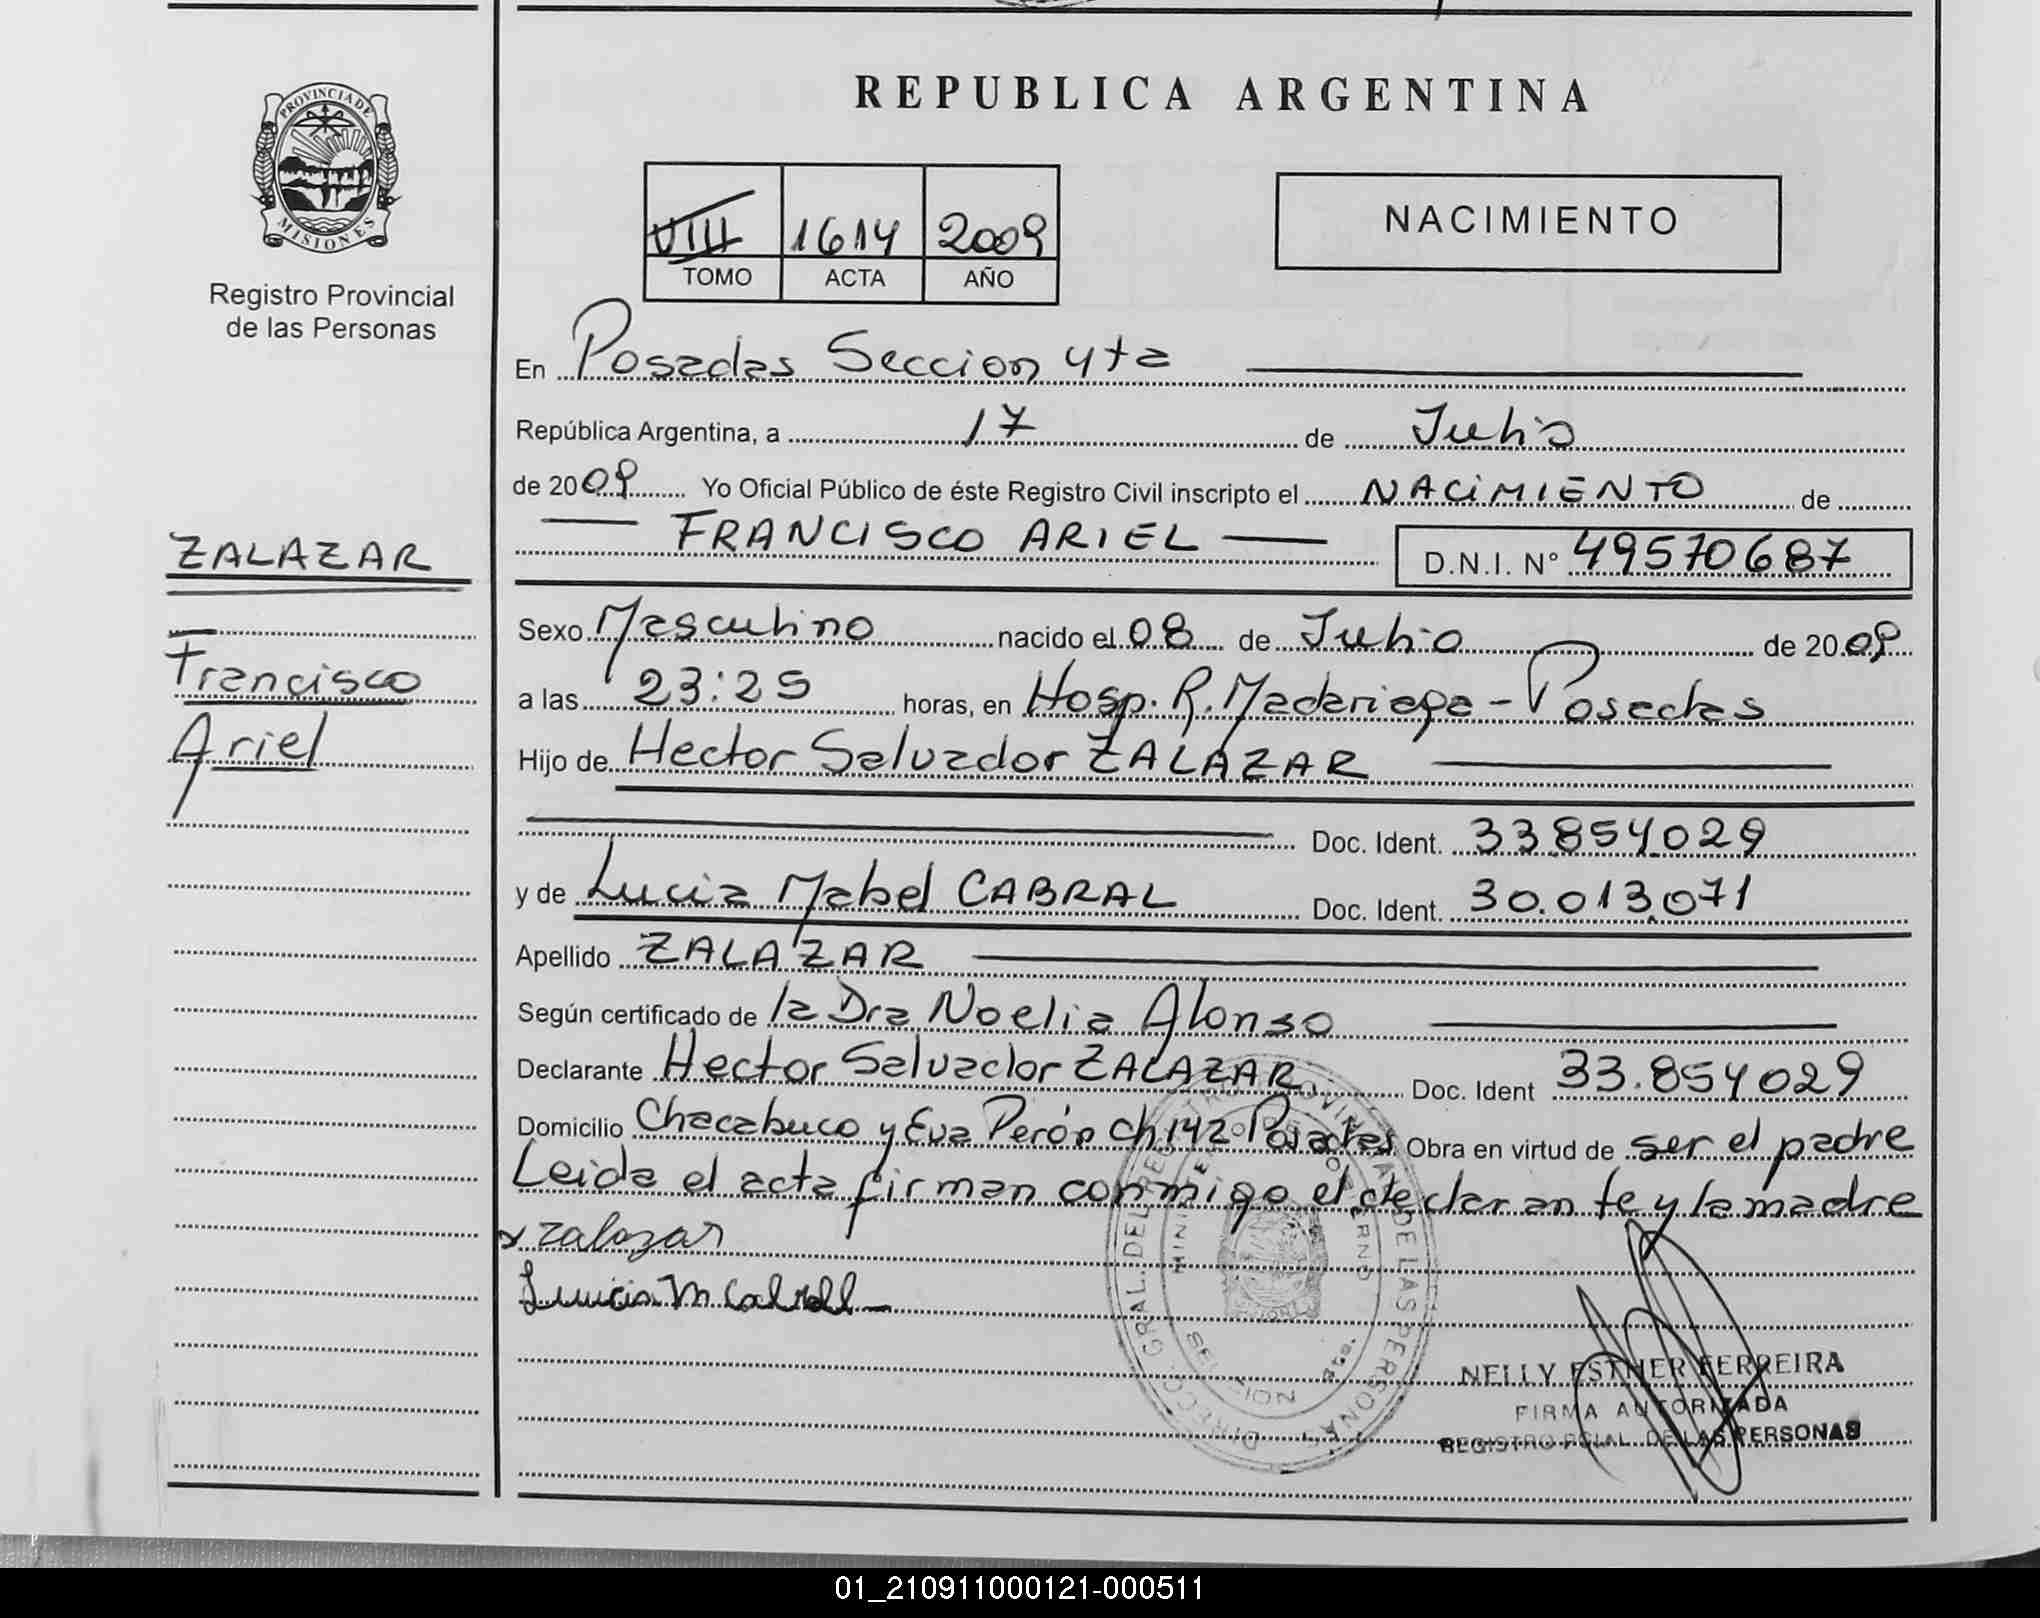 REPUBLICA ARGENTINA
PROVINCIA DE MISIONES
Registro Provincial
de las Personas
VIII 1614 2009
TOMO ACTA AÑO
NACIMIENTO
En Posadas Seccion 4ta
República Argentina, a 17 de Julio
de 2009 Yo Oficial Público de éste Registro Civil inscripto el NACIMIENTO de
FRANCISCO ARIEL D.N.I. N° 49570687
ZALAZAR
Francisco
Ariel
Sexo Masculino nacido el 08 de Julio de 2009
a las 23:25 horas, en Hosp. R. Madariaga - Posadas
Hijo de Hector Salvador ZALAZAR
Doc. Ident. 33.854.029
y de Lucia Mabel CABRAL Doc. Ident. 30.013.071
Apellido ZALAZAR
Según certificado de la Dra Noelia Alonso
Declarante Hector Salvador ZALAZAR Doc. Ident 33.854029
Domicilio Chacabuco y Eva Perón Ch 142 Posadas Obra en virtud de ser el padre
Leida el acta firman conmigo el declarante y la madre
x Zalazar
DIRECC. GRAL. DEL REGISTRO PROVINCIAL DE LAS PERSONAS
NELLY ESTHER FERREIRA
FIRMA AUTORIZADA
REGISTRO PCIAL. DE LAS PERSONAS
01_210911000121-000511